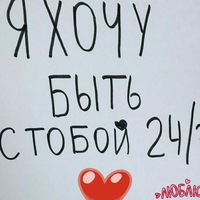 Я ХОЧУ
БЫТЬ
С ТОБОЙ 24/7
ЛЮБЛЮ